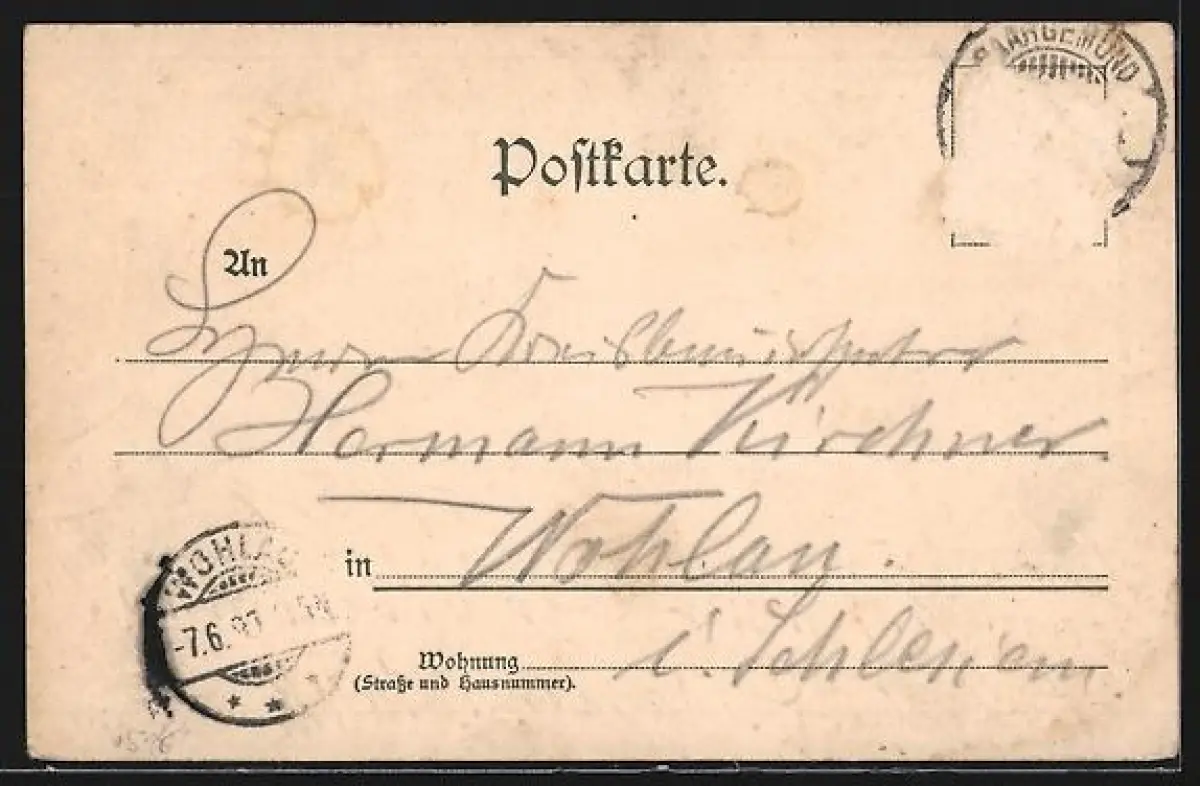 SAARGEMÜND
Postkarte.
An
Herrn
Hermann Kirchner
in Wohlau.
i. Schlesien
Wohnung
(Straße und Hausnummer).
WOHLAU
-7.6.